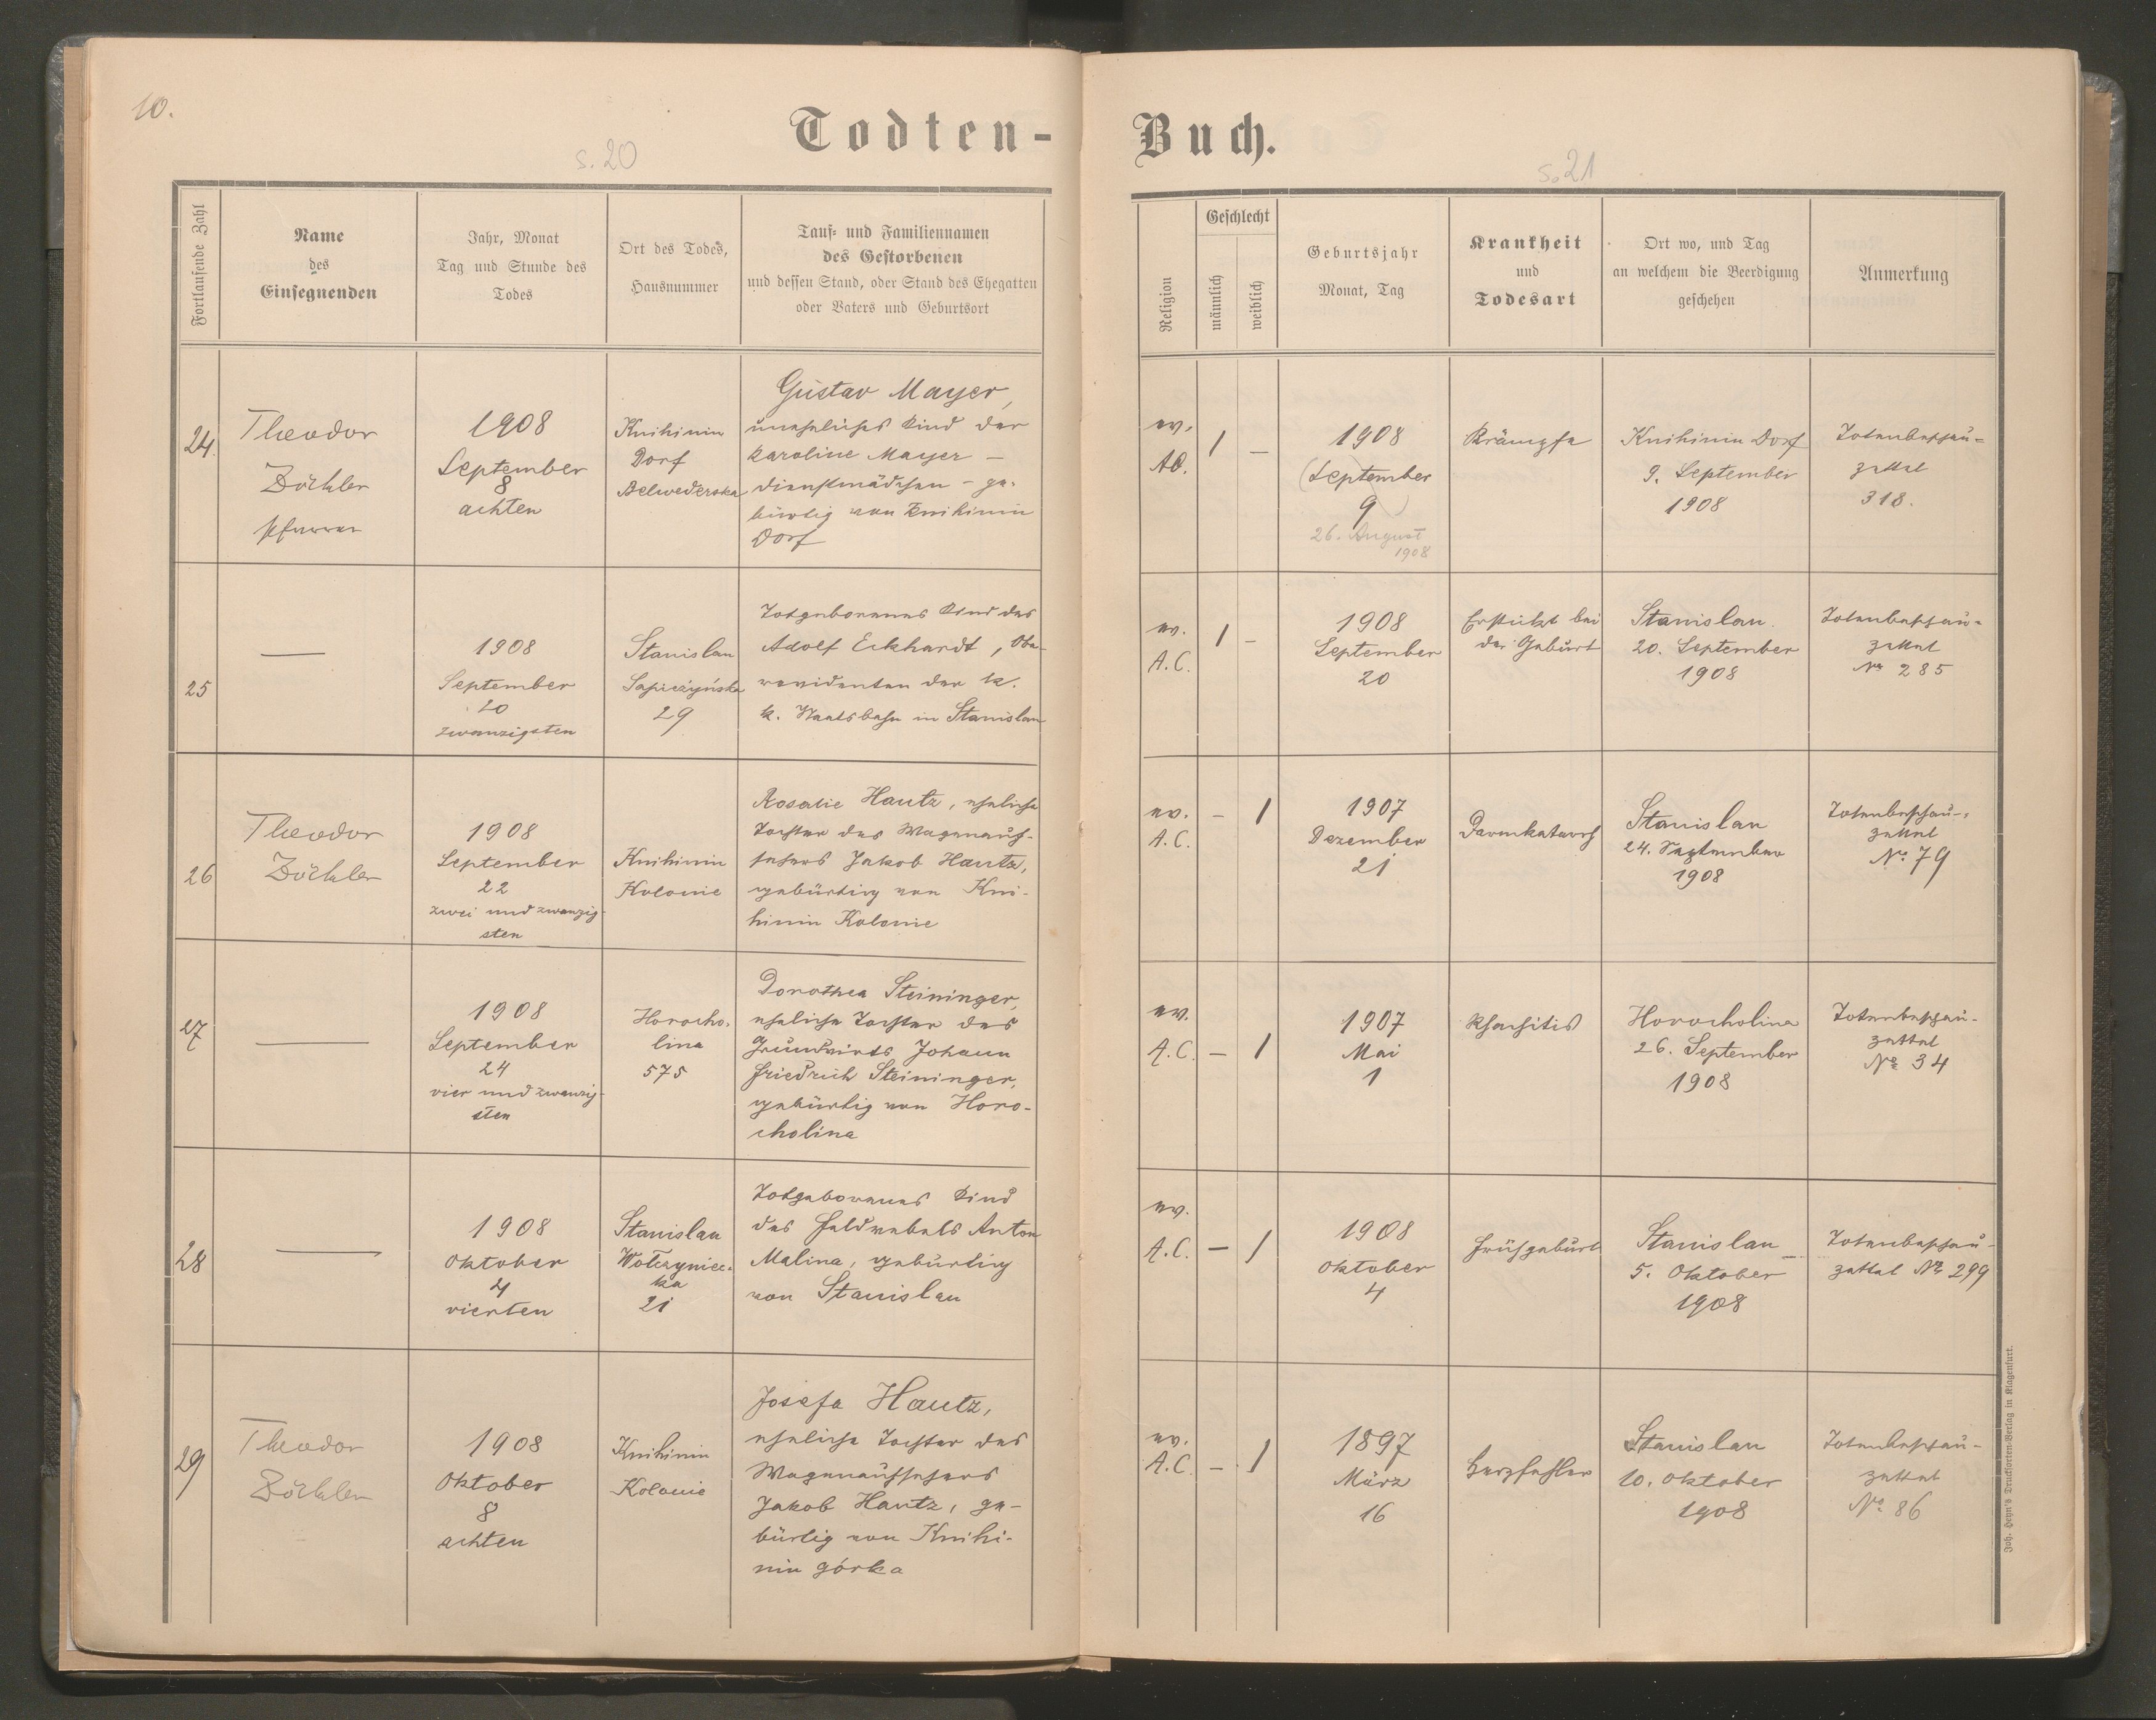 10.
Todten-
Buch.
s. 20
s. 21
Fortlaufende Zahl
Name
des
Einsegnenden
Jahr, Monat
Tag und Stunde des
Todes
Ort des Todes,
Hausnummer
Tauf- und Familiennamen
des Gestorbenen
und dessen Stand, oder Stand des Ehegatten
oder Vaters und Geburtsort
Religion
Geschlecht
männlich
weiblich
Geburtsjahr
Monat, Tag
Krankheit
und
Todesart
Ort wo, und Tag
an welchem die Beerdigung
geschehen
Anmerkung
24.
Theodor
Zöckler
Pfarrer
1908
September
8
achten
Knihinin
Dorf
Belwederska
Gustav Mayer,
uneheliches Kind der
Karoline Mayer –
Dienstmädchen – ge-
bürtig von Knihinin
Dorf
ev.
AC.
1
–
1908
(September
9)
26. August
1908
Krämpfe
Knihinin Dorf
9. September
1908
Totenbeschau-
zettel
318.
25
—
1908
September
20
zwanzigsten
Stanislau
Sapieżyńska
29
Totgeborenes Kind des
Adolf Eckhardt, Obe-
revidenten der k.
k. Staatsbahn in Stanislau
ev.
A.C.
1
–
1908
September
20
Erstickt bei
der Geburt
Stanislau
20. September
1908
Totenbeschau-
zettel
No 285
26
Theodor
Zöckler
1908
September
22
zwei und zwanzig-
sten
Knihinin
Kolonie
Rosalie Hautz, eheliche
Tochter des Wagenauf-
sehers Jakob Hautz,
gebürtig von Kni-
hinin Kolonie
ev.
A.C.
–
1
1907
Dezember
21
Darmkatarrh
Stanislau
24. September
1908
Totenbeschau-
zettel
No 79
27
—
1908
September
24
vier und zwanzig-
sten
Horocho-
lina
575
Dorothea Steininger,
eheliche Tochter des
Grundwirts Johann
Friedrich Steininger,
gebürtig von Horo-
cholina
ev.
A.C.
–
1
1907
Mai
1
Rhachitis
Horocholina
26. September
1908
Totenbeschau-
zettel
No 34
28
—
1908
Oktober
4
vierten
Stanislau
Wołczyniec-
ka
21
Totgeborenes Kind
des Feldwebels Anton
Malina, gebürtig
von Stanislau
ev.
A.C.
–
1
1908
Oktober
4
Frühgeburt
Stanislau
5. Oktober
1908
Totenbeschau-
zettel No 299
29
Theodor
Zöckler
1908
Oktober
8
achten
Knihinin
Kolonie
Josefa Hautz,
eheliche Tochter des
Wagenaufsehers
Jakob Hautz, ge-
bürtig von Knihi-
nin górka
ev.
A.C.
–
1
1897
März
16
Herzfehler
Stanislau
10. Oktober
1908
Totenbeschau-
zettel
No 86
Joh. Heyn's Drucksorten-Verlag in Klagenfurt.